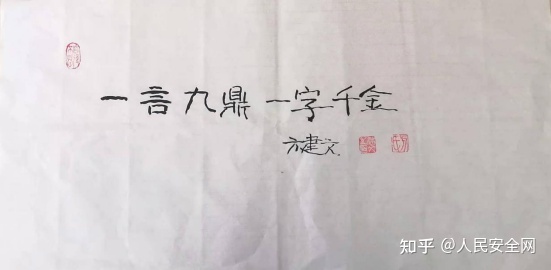 一言九鼎一字千金
方建文
知乎 @人民安全网